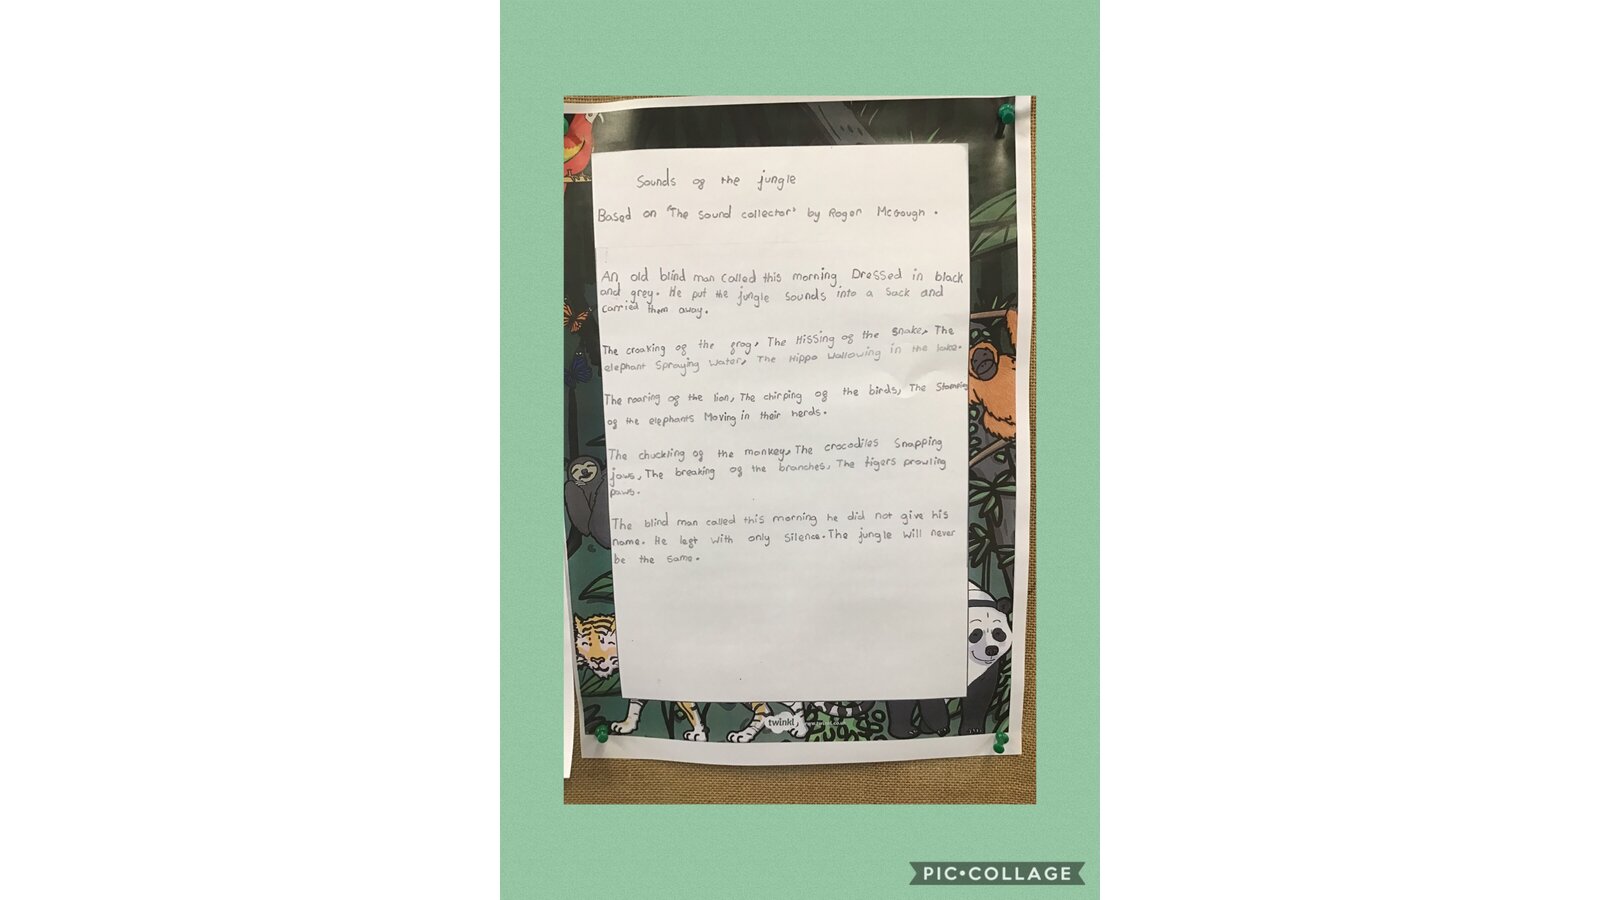 Sounds of the jungle
Based on "The sound collector" by Roger McGough.
An old blind man called this morning Dressed in black
and grey. He put the jungle sounds into a sack and
carried them away.
The croaking of the frog, The Hissing of the snake, The
elephant Spraying water, The Hippo Wallowing in the lake.
The roaring of the lion, The chirping of the birds, The Stomping
of the elephants Moving in their herds.
The chuckling of the monkey, The crocodiles Snapping
jaws, The breaking of the branches, The tigers prowling
paws.
The blind man called this morning he did not give his
name. He left with only silence. The jungle will never
be the same.
twinkl
www.twinkl.co.uk
PIC•COLLAGE